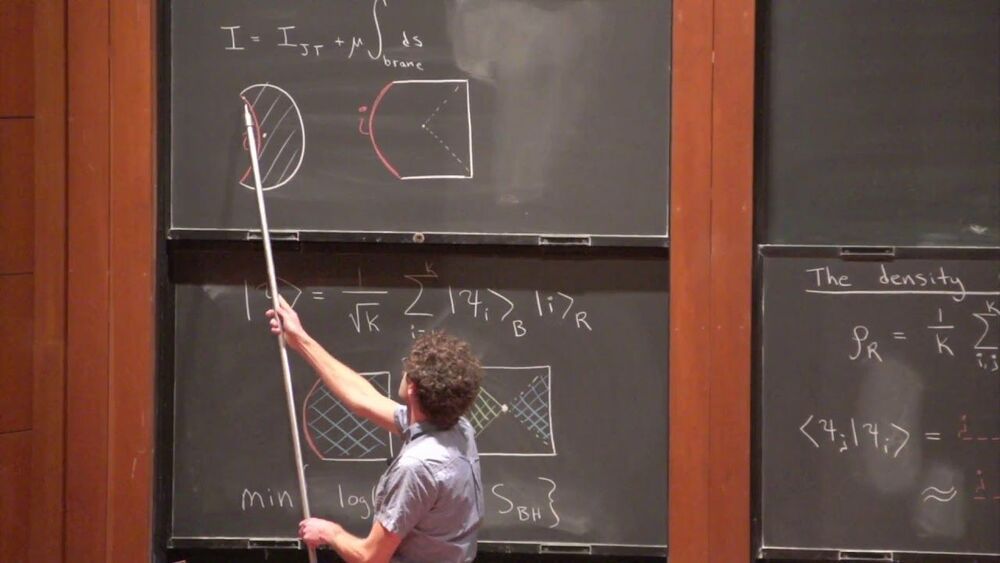 I = I_JT + μ∫_brane ds
i i
|Ψ⟩ = 1/√K ∑ᴷ_i= |ψ_i⟩_B |i⟩_R
min log( S_BH}
The density
ρ_R = 1/K ∑ᴷ_i,j
⟨ψ_j|ψ_i⟩ = j
≈ j